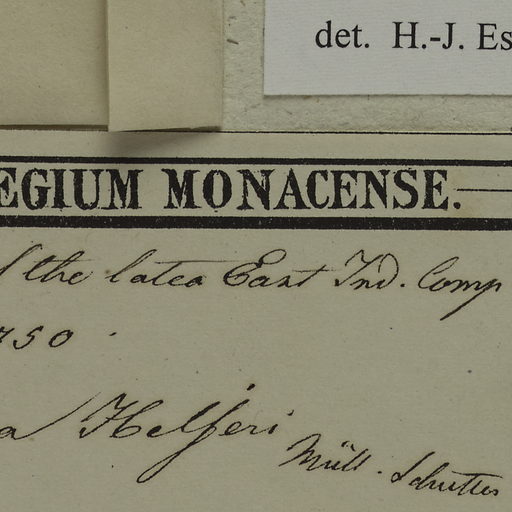 det. H.-J. Es
EGIUM MONACENSE.
f the late East Ind. Comp
750
a Helferi
Müll.